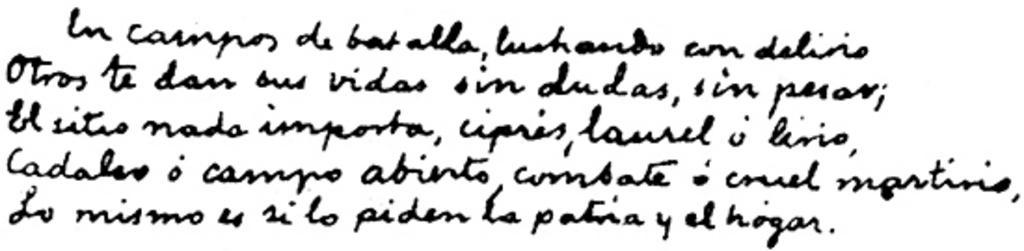 En campos de batalla, luchando con delirio
Otros te dan sus vidas sin dudas, sin pesar;
El sitio nada importa, ciprés, laurel ó lirio,
Cadalso ó campo abierto, combate ó cruel martirio,
Lo mismo es si lo piden la patria y el hogar.